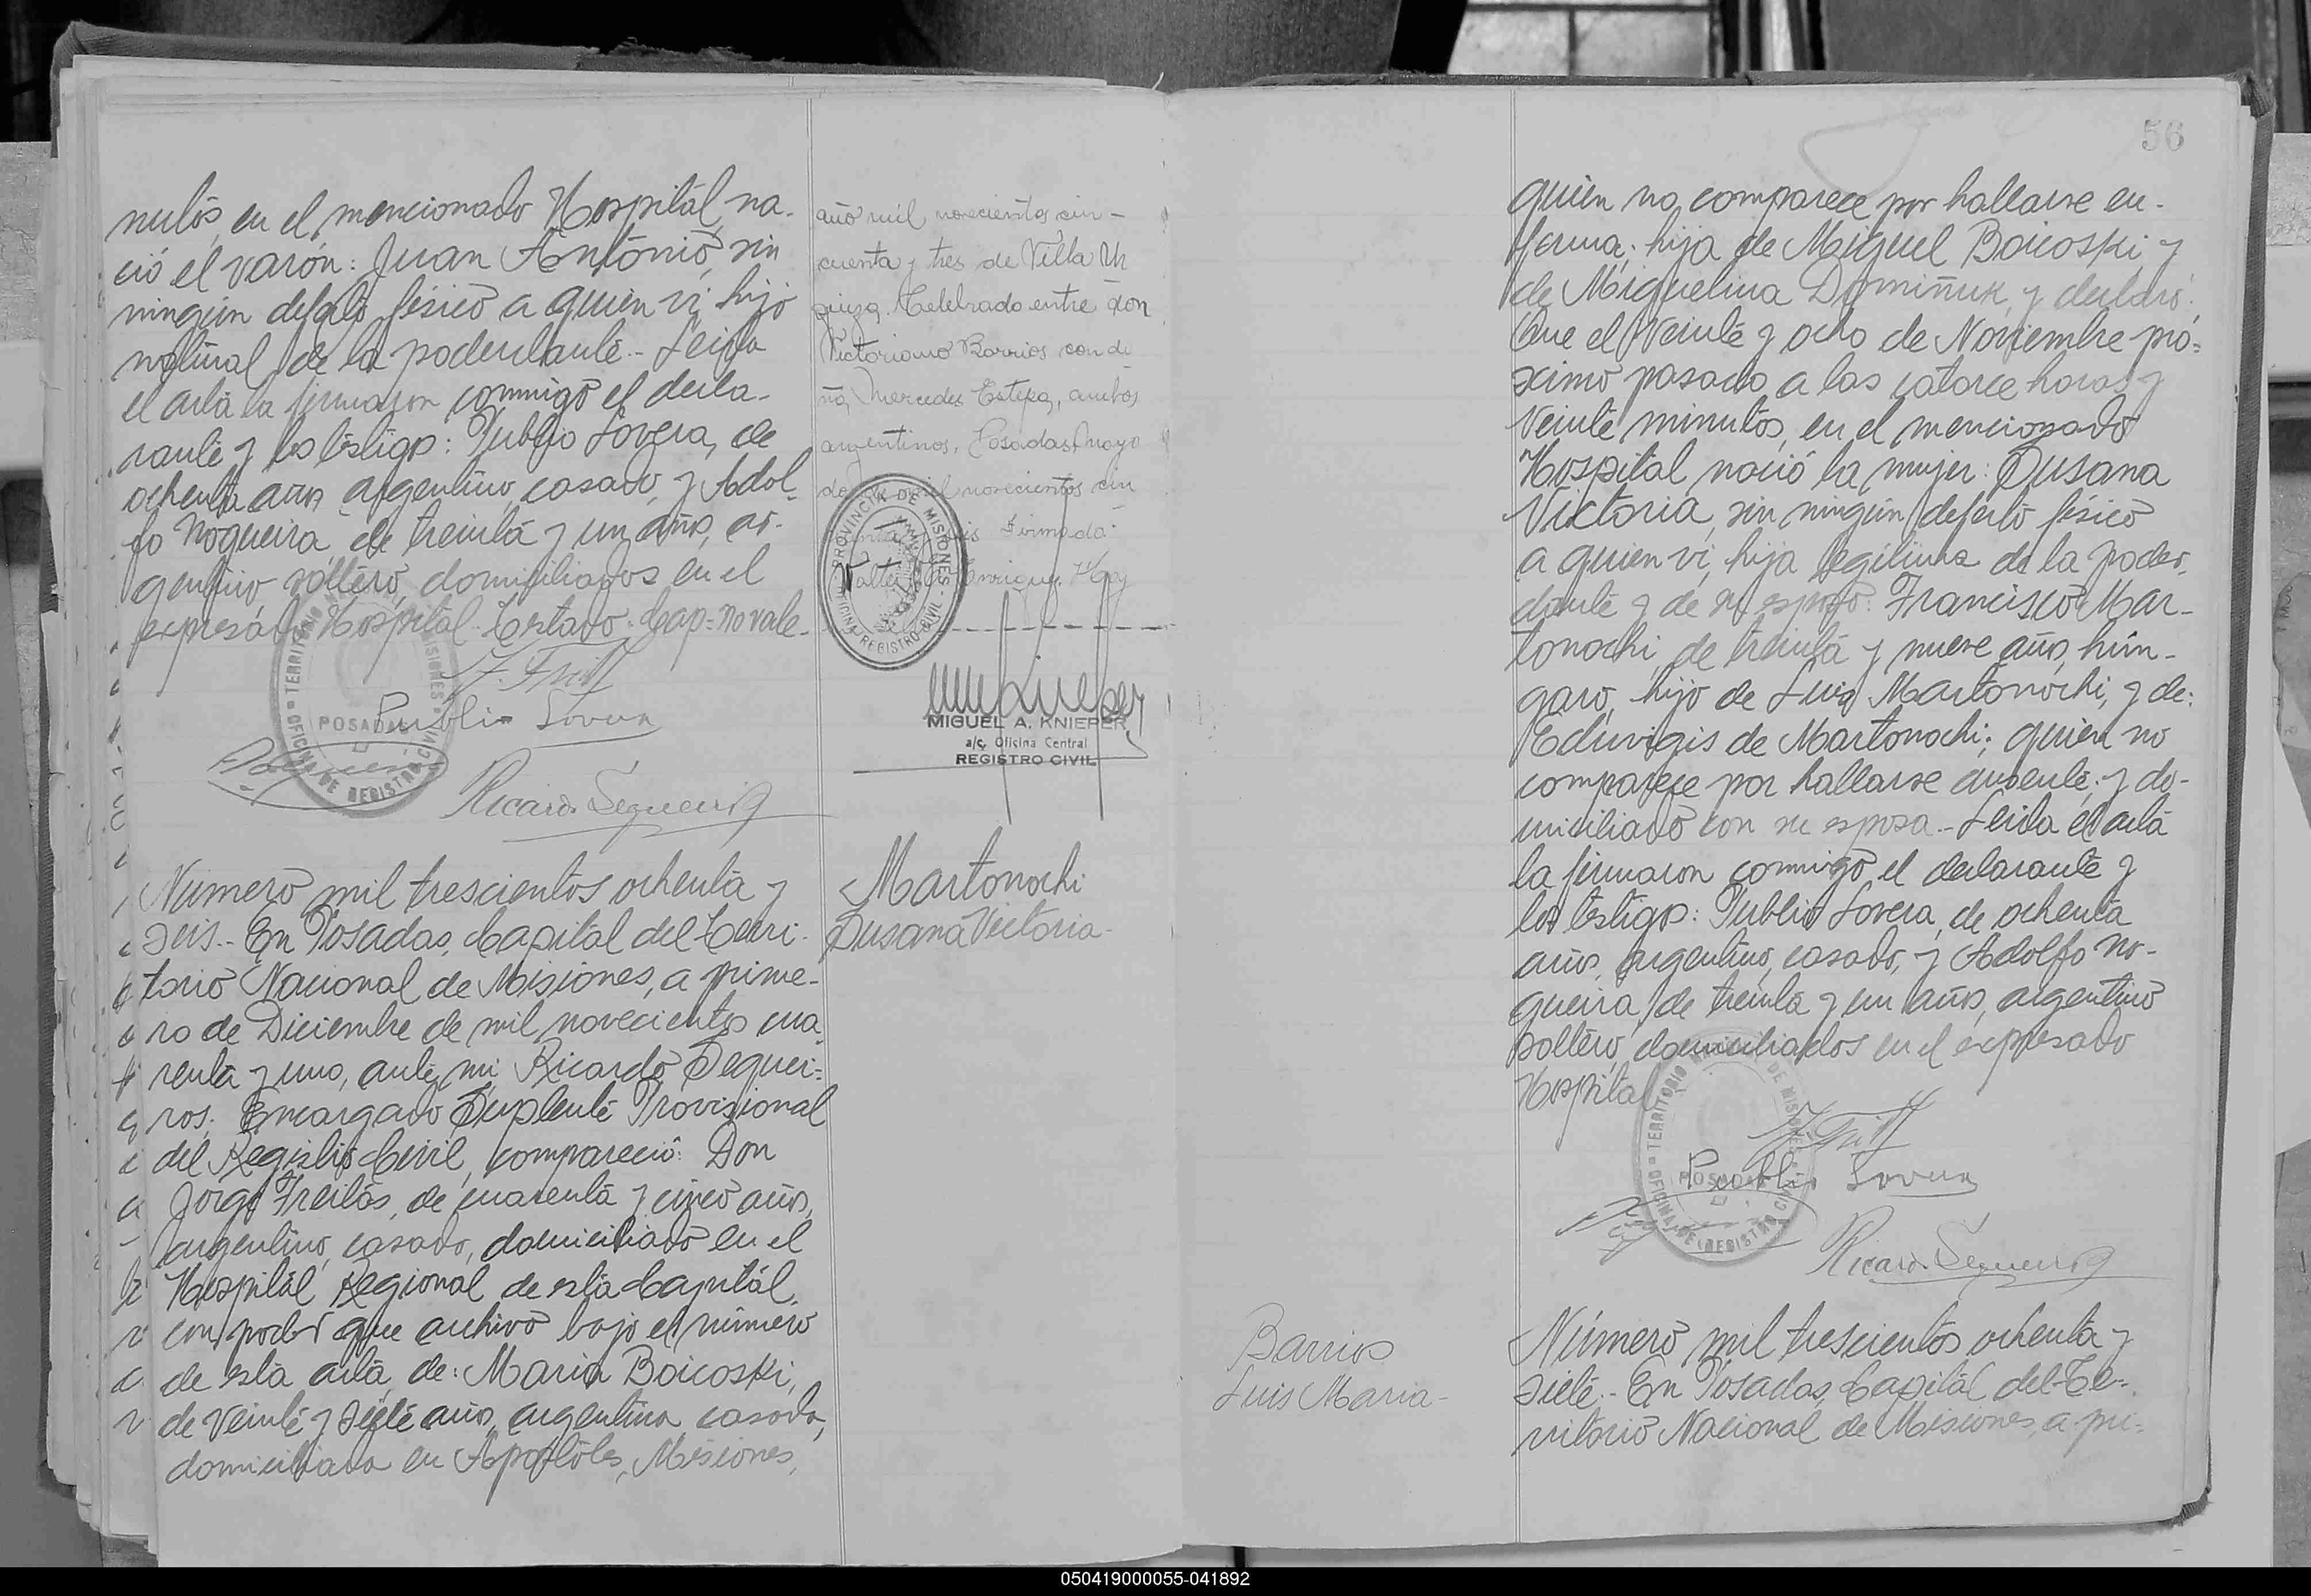 nutos, en el mencionado Hospital, na-
ció el varón: Juan Antonio, sin
ningún defecto físico a quien vi, hijo
natural de la poderdante.- Leida
el acta la firmaron conmigo el decla-
rante y los testigos: Publio Lovera, de
ochenta años argentino, casado, y Adol-
fo Nogueira de treinta y un años, ar-
gentino soltero, domiciliados en el
expresado Hospital. Testado: Cap=no vale.
Publio Lovera
Ricardo Sequeiros
Número mil trescientos ochenta y
seis.- En Posadas, Capital del Terri-
torio Nacional de Misiones, a prime-
ro de Diciembre de mil novecientos cua-
renta y uno, ante mi Ricardo Sequei-
ros: Encargado Suplente Provisional
del Registro Civil, compareció: Don
Jorge Freitas, de cuarenta y cinco años,
argentino, casado, domiciliado en el
Hospital Regional de esta Capital,
con poder que archivo bajo el número
de esta acta, de: Maria Boicoski,
de veinte y siete años, argentina casada,
domiciliada en Apóstoles, Misiones,
año mil novecientos cin-
cuenta y tres de Villa Ur
quiza. Celebrado entre don
Victoriano Barrios con do
ña Mercedes Estepa, ambos
argentinos. Posadas, mayo
mil novecientos cin
Firmado:
Walter Enrique
PROVINCIA DE MISIONES
OFICINA REGISTRO CIVIL
MIGUEL A. KNIEPER
a/c. Oficina Central
REGISTRO CIVIL
TERRITORIO MISIONES
POSADAS
OFICINA DE REGISTRO CIVIL
Martonochi
Susana Victoria-
56
quien no comparece por hallarse en-
ferma; hija de Miguel Boicoski y
de Miguelina Domiñuk, y declaró:
Que el veinte y ocho de Noviembre pró-
ximo pasado a las catorce horas y
veinte minutos, en el mencionado
Hospital nació la mujer: Susana
Victoria, sin ningún defecto físico
a quien vi, hija legítima de la poder-
dante y de su esposo: Francisco Mar-
tonochi, de treinta y nueve años, hún-
garo, hijo de Luis Martonochi, y de:
Eduvigis de Martonochi; quien no
comparece por hallarse ausente; y do-
miciliado con su esposa.- Leida el acta
la firmaron conmigo el declarante y
los testigos: Publio Lovera, de ochenta
años, argentino, casado, y Adolfo No-
gueira, de treinta y un años, argentino
soltero, domiciliados en el expresado
Hospital
TERRITORIO DE MISIONES
POSADAS
OFICINA DE REGISTRO CIVIL
Publio Lovera
Ricardo Sequeiros
Barrios
Luis Maria-
Número mil trescientos ochenta y
siete.- En Posadas, Capital del Te-
rritorio Nacional de Misiones, a pri-
050419000055-041892